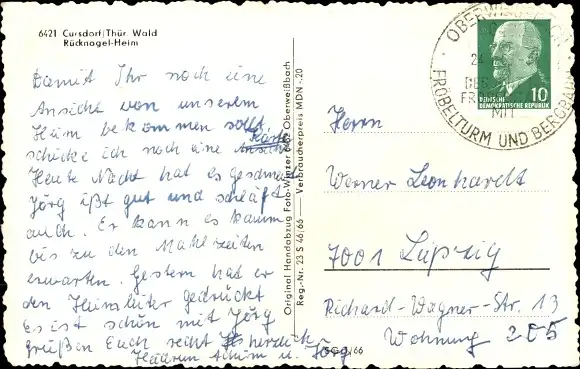 6421 Cursdorf/Thür. Wald
Rücknagel-Heim
Damit Ihr noch eine
Ansicht von unserem
Heim bekommen sollt,
schicke ich noch eine Ansicht Karte
Heute Nacht hat es geschneit
Jörg ißt gut und schläft
auch. Er kann es kaum
bis zu den Mahlzeiten
erwarten. Gestern hat er
den Heimleiter gedrückt
Es ist schön mit Jörg
Grüßen Euch recht herzlich
Achim u. Jörg
Original Handabzug Foto-Oberweißbach
Reg.-Nr. 23 S 46/66 — Verbraucherpreis MDN -.20
OBERWEISSBACH
24
MIT
FRÖBELTURM UND BERGBAHN
10
DEUTSCHE
DEMOKRATISCHE REPUBLIK
Herrn
Werner Leonhardt
7001 Leipzig
Richard-Wagner-Str. 13
Wohnung 205